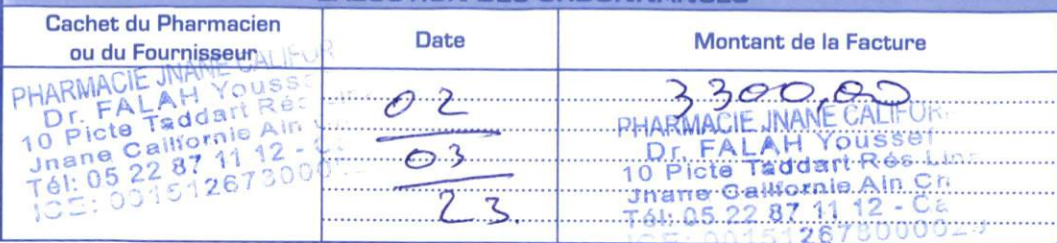 EXECUTION DES ORDONNANCES
Cachet du Pharmacien
ou du Fournisseur
Date
Montant de la Facture
PHARMACIE JNANE CALIFOR
Dr. FALAH Youssef
10 Picte Taddart Rés
Jnane Californie Ain
Tél: 05 22 87 11 12 - Ca
ICE: 0015126730000
02
03
23.
3300,00
PHARMACIE JNANE CALIFOR
Dr. FALAH Youssef
10 Picte Taddart Rés Lin
Jnane Californie Ain Ch
Tél: 05 22 87 11 12 - Ca
ICE: 00151267300002